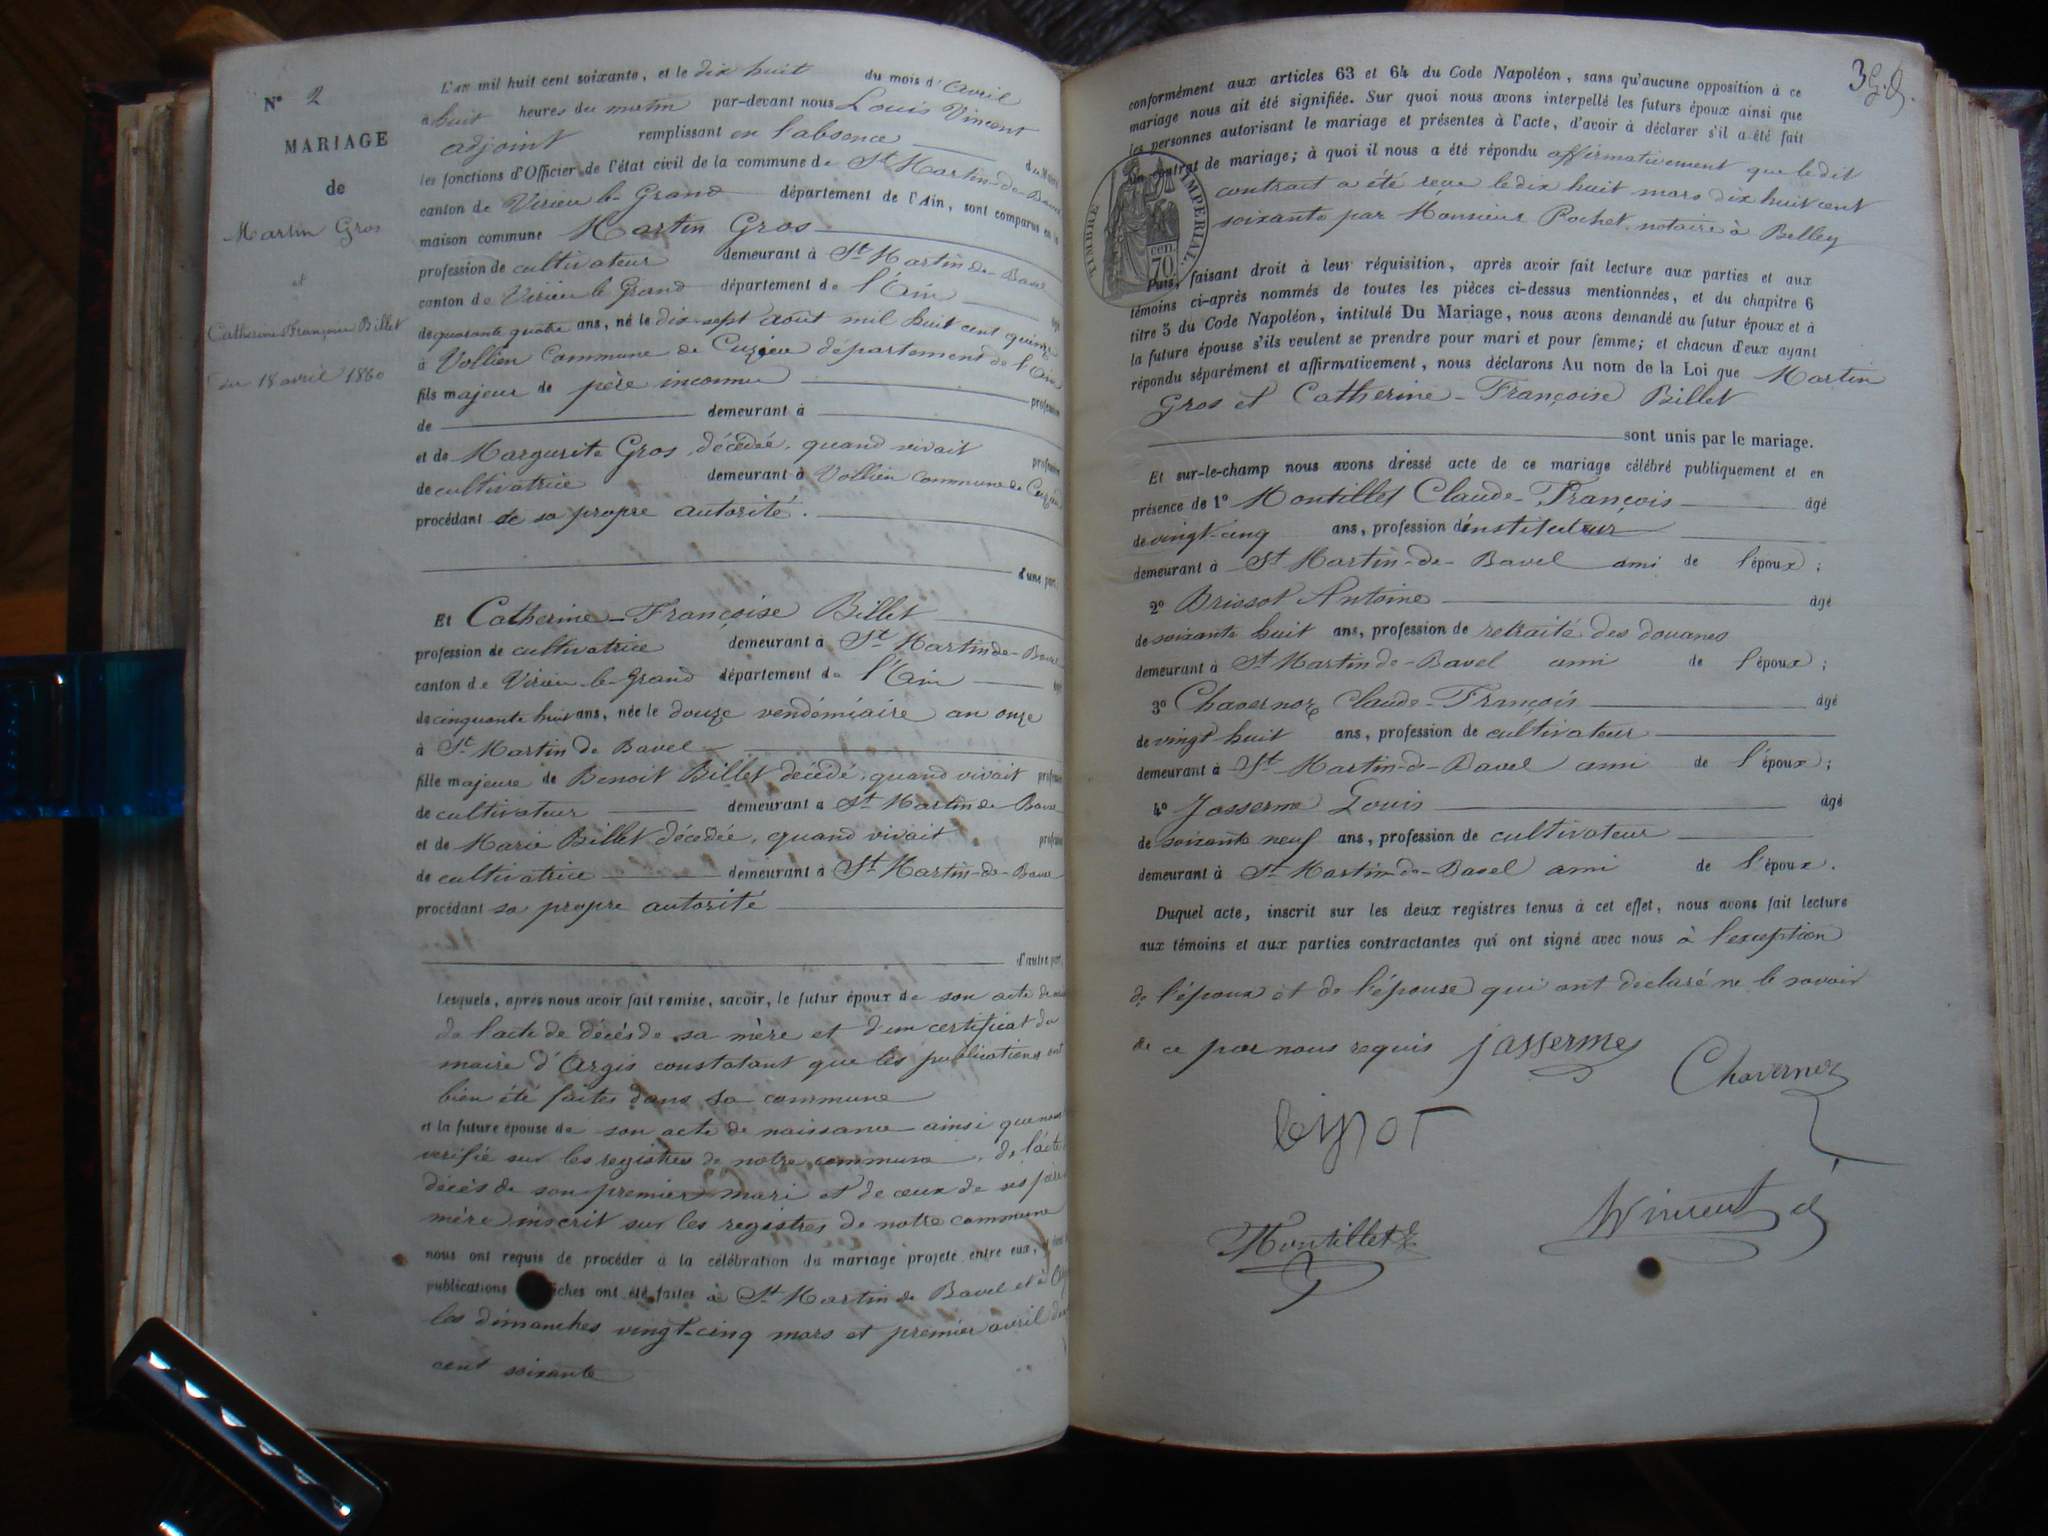 N° 2
MARIAGE
de
Martin Gros
et
Catherine Françoise Billet
du 18 avril 1860
L'an mil huit cent soixante, et le dix huit du mois d'avril
à huit heures du matin par-devant nous Louis Vincent
adjoint remplissant en l'absence du Maire
les fonctions d'Officier de l'état civil de la commune de St Martin-de-Bavel
canton de Virieu-le-Grand département de l'Ain, sont comparus en la
maison commune Martin Gros
profession de cultivateur demeurant à St Martin de-Bavel
canton de Virieu le Grand département de l'Ain âgé
de quarante quatre ans, né le dix-sept août mil huit cent quinze
à Vollien commune de Cuzieu département de l'Ain
fils majeur de père inconnu profession
de demeurant à
et de Margurite Gros décédée, quand vivait profession
de cultivatrice demeurant à Vollien commune de Cuzieu
procédant de sa propre autorité.
d'une part.
Et Catherine-Françoise Billet
profession de cultivatrice demeurant à St Martin de-Bavel
canton de Virieu-le-Grand département de l'Ain âgé
de cinquante huit ans, née le douze vendémiaire an onze
à St Martin de Bavel
fille majeure de Benoit Billet décédé, quand vivait profession
de cultivateur demeurant à St Martin de Bavel
et de Marie Billet décédée, quand vivait profession
de cultivatrice demeurant à St Martin-de-Bavel
procédant sa propre autorité
d'autre part.
Lesquels, après nous avoir fait remise, savoir, le futur époux de son acte de
de l'acte de décès de sa mère et d'un certificat du
maire d'Argis constatant que les publications ont
bien été faites dans sa commune
et la future épouse de son acte de naissance ainsi que nous
verifié sur les registres de notre commune, de l'acte
décès de son premier mari et de ceux de ses père
mère inscrit sur les registres de notre commune
nous ont requis de procéder à la célébration du mariage projeté entre eux,
publications ont été faites à St Martin de Bavel et à
les dimanches vingt-cinq mars et premier avril
cent soixante
3
conformément aux articles 63 et 64 du Code Napoléon, sans qu'aucune opposition à ce
mariage nous ait été signifiée. Sur quoi nous avons interpellé les futurs époux ainsi que
les personnes autorisant le mariage et présentes à l'acte, d'avoir à déclarer s'il a été fait
un contrat de mariage; à quoi il nous a été répondu affirmativement que le dit
contract a été reçu le dix huit mars dix huit cent
soixante par Monsieur Pochet, notaire à Belley
TIMBRE IMPERIAL.
70 cen.
Puis, faisant droit à leur réquisition, après avoir fait lecture aux parties et aux
témoins ci-après nommés de toutes les pièces ci-dessus mentionnées, et du chapitre 6
titre 5 du Code Napoléon, intitulé Du Mariage, nous avons demandé au futur époux et à
la future épouse s'ils veulent se prendre pour mari et pour femme; et chacun d'eux ayant
répondu séparément et affirmativement, nous déclarons Au nom de la Loi que Martin
Gros et Catherine-Françoise Billet
sont unis par le mariage.
Et sur-le-champ nous avons dressé acte de ce mariage célébré publiquement et en
présence de 1° Montillet Claude-François âgé
de vingt-cinq ans, profession d'instituteur
demeurant à St Martin-de-Bavel ami de l'époux;
2° Brissot Antoine âgé
de soixante huit ans, profession de retraité des douanes
demeurant à St Martin de-Bavel ami de l'époux;
3° Chavernoz Claude-François âgé
de vingt huit ans, profession de cultivateur
demeurant à St Martin-de-Bavel ami de l'époux;
4° Jasserme Louis âgé
de soixante neuf ans, profession de cultivateur
demeurant à St Martin-de-Bavel ami de l'époux.
Duquel acte, inscrit sur les deux registres tenus à cet effet, nous avons fait lecture
aux témoins et aux parties contractantes qui ont signé avec nous à l'exception
de l'époux et de l'épouse qui ont declaré ne le savoir
de ce par nous requis Jasserme
Chavernoz
Montillet
Vincent